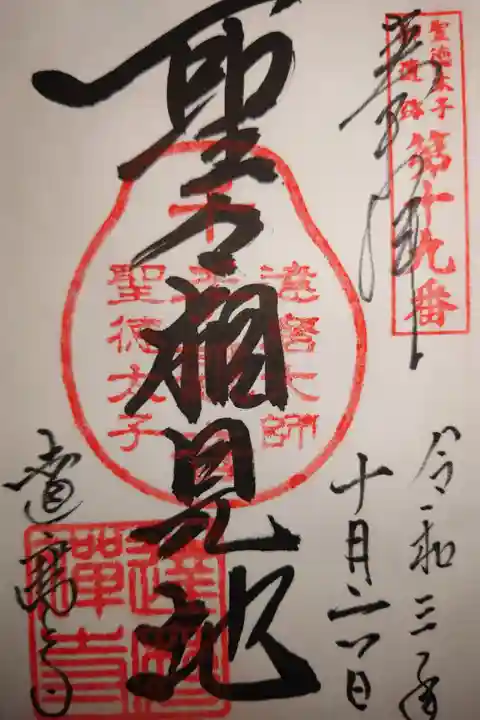 聖徳太子
御遺跡
第十九番
奉拝
令和三年
十月二八日
聖々相見地
達磨大師
聖徳太子
達磨寺
達磨
禪寺